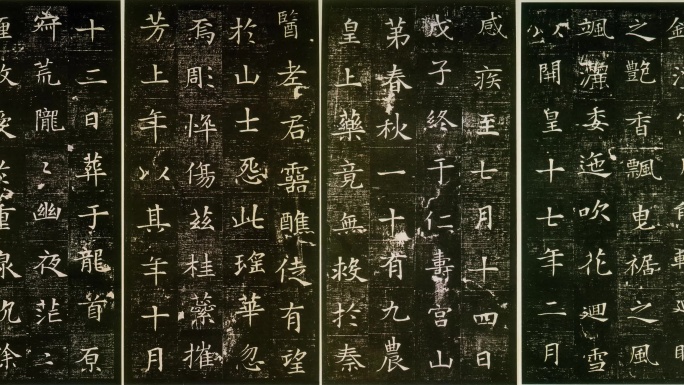 之艷香飄曳裾之風
颯灑委迤吹花迴雪
以開皇十七年二月
感疾至七月十四日
戊子終于仁壽宮山
第春秋一十有九農
皇上藥竟無救於秦
醫老君靈醮徒有望
於山士怨此瑤華忽
焉彫悴傷茲桂蘂摧
芳上年以其年十月
十二日葬于龍首原
荒隴〻幽夜茫〻
重泉沉餘